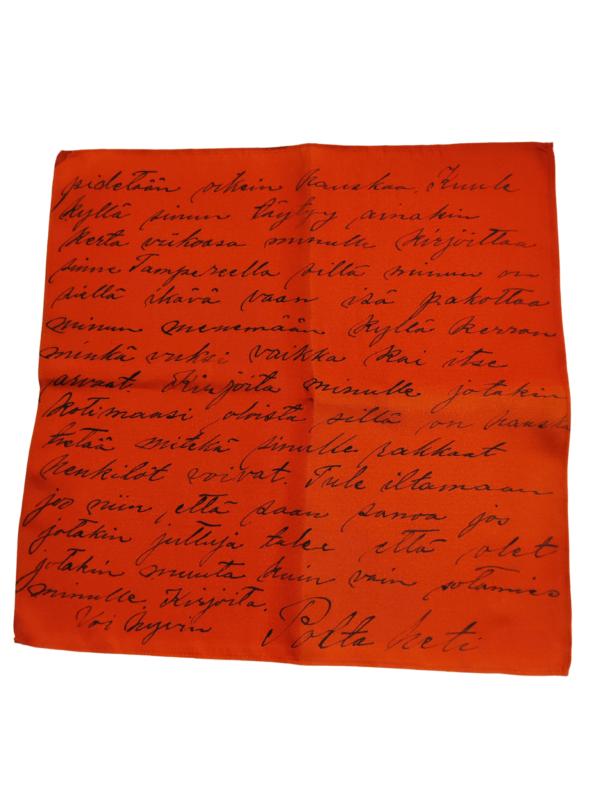 pidetään oikein hauskaa. Kuule
kyllä sinun täytyy ainakin
kerta viikossa minulle kirjoittaa
sinne Tampereella sillä minun on
siellä ikävä vaan isä pakottaa
minun menemään kyllä kerron
minkä vuksi vaikka kai itse
arvaat. Kirjoita minulle jotakin
kotimaasi oloista sillä on hauska
tietää mitekä sinulle rakkaat
henkilöt voivat. Tule iltamaan
jos niin että saan sanoa jos
jotakin juttuja tulee että olet
jotakin muuta kuin vain sotamies
minulle. Kirjoita.
Voi hyvin Polta heti